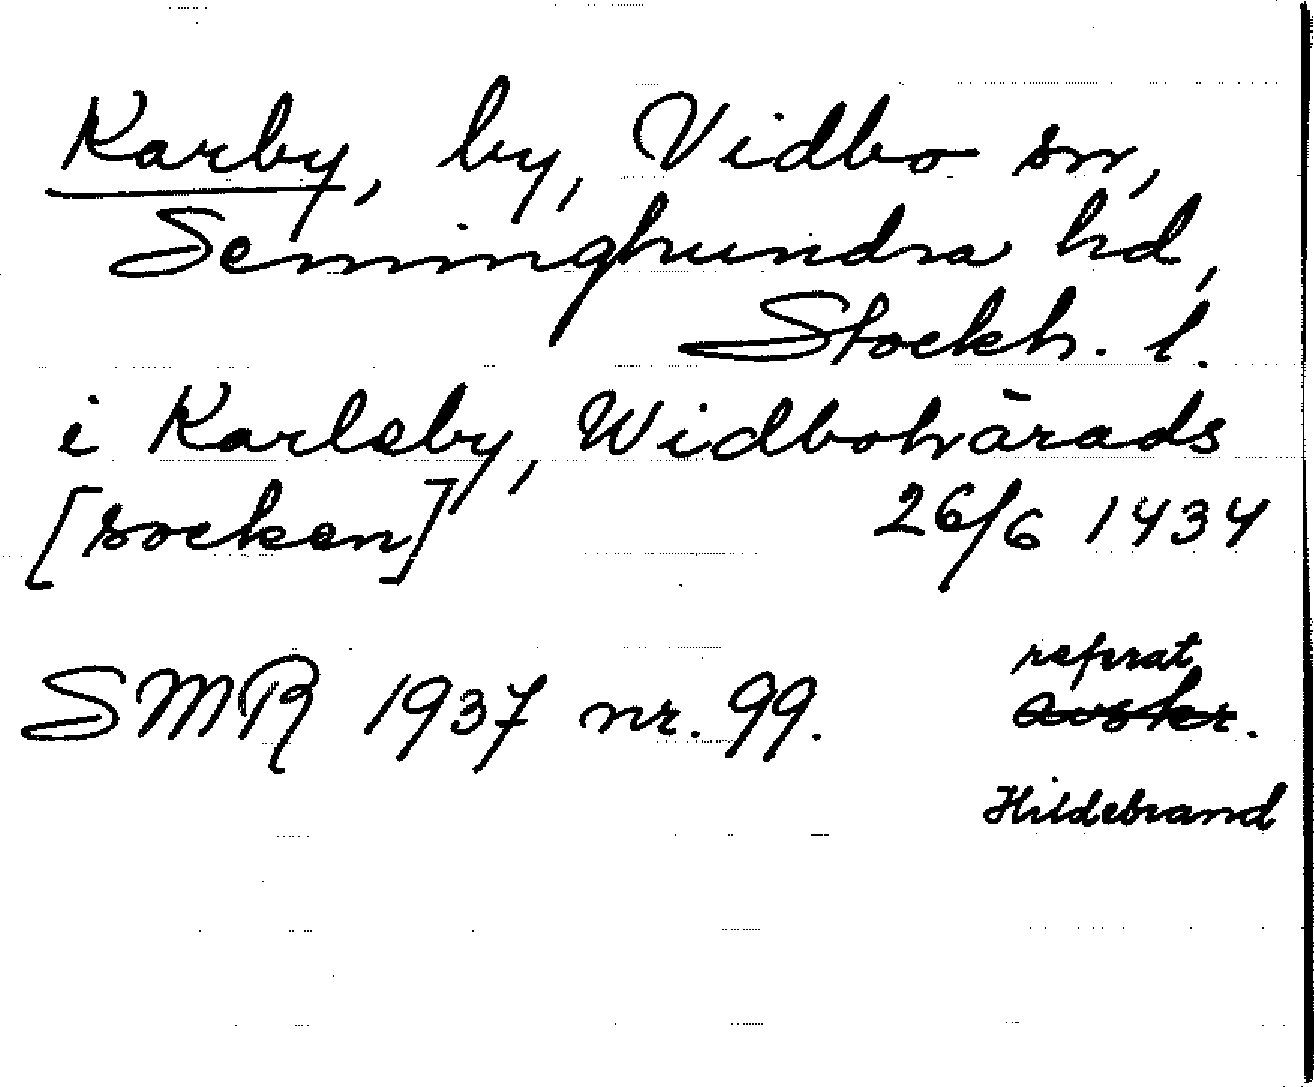 Karby, by, Vidbo sn,
Seminghundra hd,
Stockh. l.
i Karleby, Widbohärads
[socken] 26/6 1434
referat
SMR 1937 nr. 99. avskr.
Hildebrand